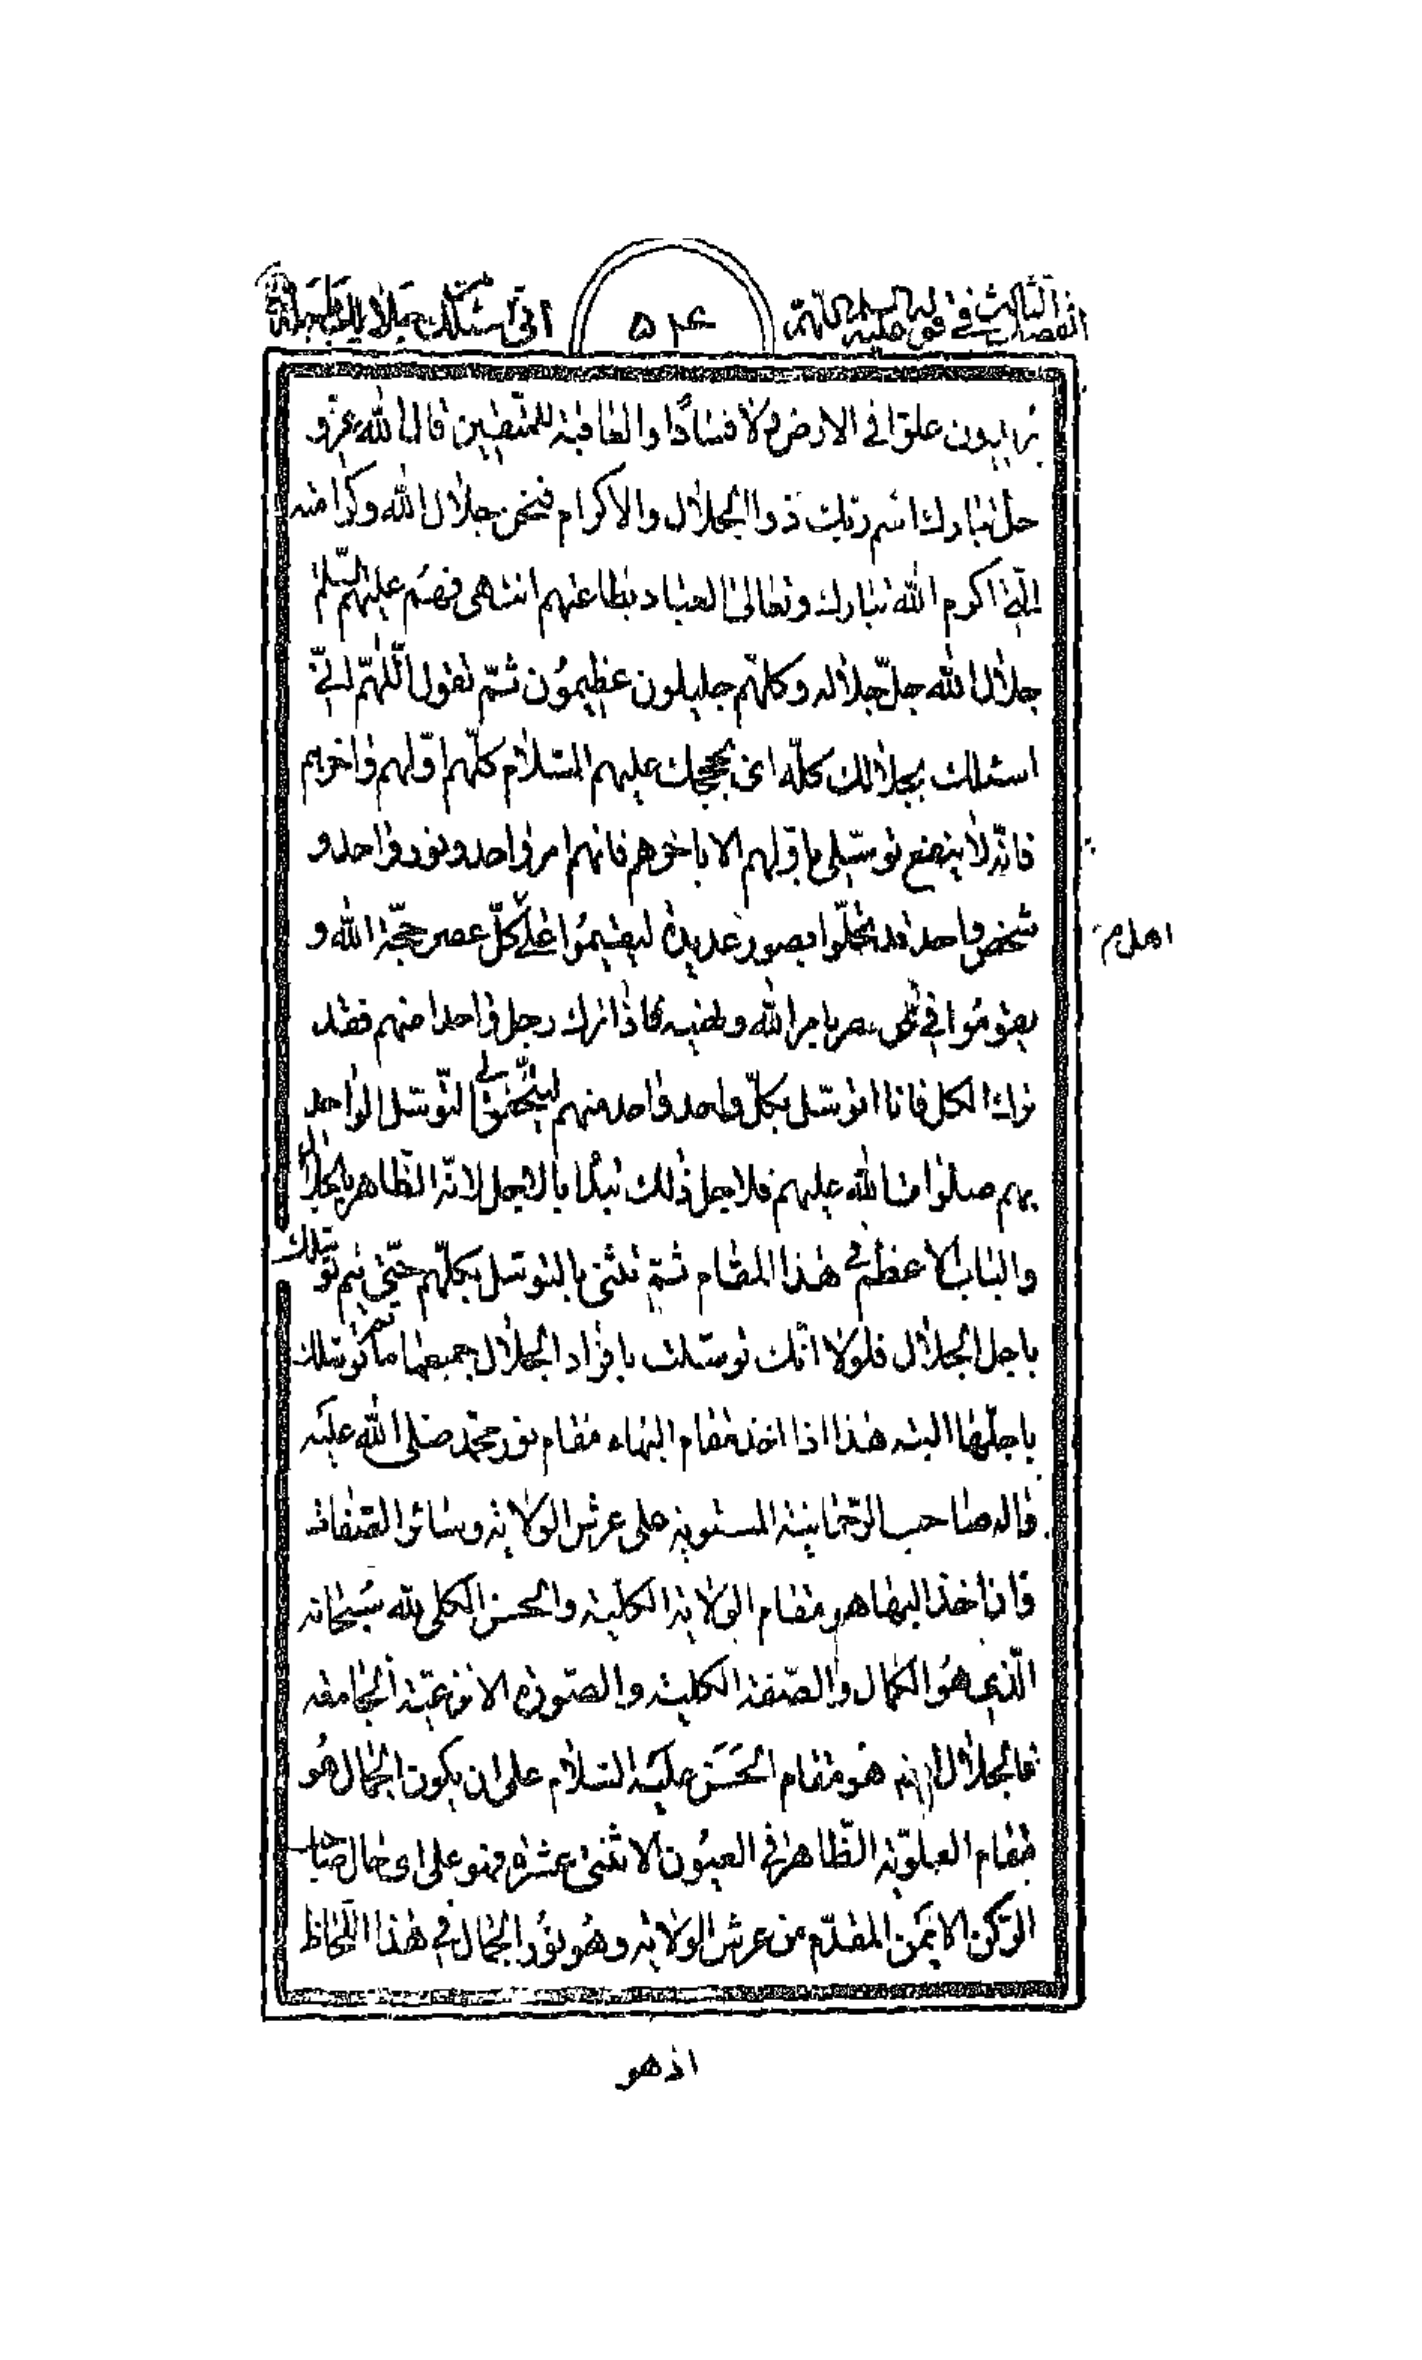 الفصل الثالث في قوله عليه السلام اللهم
٥٢٤
اني اسئلك بجلالك
يريدون علوّا في الارض ولا فسادًا والعاقبة للمتّقين قال الله عزّ و
جلّ تبارك اسم ربّك ذو الجلال والاكرام فنحن جلال الله وكرامته
الّتي اكرم الله تبارك وتعالى العباد بطاعتهم انتهى فهم عليهم السّلم
جلال الله جلّ جلاله وكلّهم جليلون عظيمون ثمّ تقول اللّهمّ انّي
اسئلك بجلالك كلّه اى بحججك عليهم السّلام كلّهم اوّلهم واخرهم
فانّه لا ينفع توسّلى باوّلهم الا باخرهم فانهم امر واحد ونور واحد و
شخص واحد قد تجلّوا بصور عديدة ليقيموا على كلّ عصر حجّة الله و
اهل م
يقوموا في كل عصر بامر الله ونهيه فاذا ترك رجل واحدا منهم فقد
ترك الكل فانا اتوسّل بكلّ واحد واحد منهم ليتحقق لي التّوسّل الواحد
بهم صلوات الله عليهم فلاجل ذلك تبدا بالاجل لانّه الظّاهر بالجلال
والباب الاعظم في هذا المقام ثمّ تثنى بالتوسّل بكلّهم حتّى يتم توسّلك
باجل الجلال فلولا انّك توسّلت بافراد الجلال جميعها ما تم توسّلك
باجلّها البته هذا اذا اخذ مقام البهاء مقام نور محمّد صلى الله عليه
واله صاحب الرّحمانيّة المستوية على عرش الولاية وسائر الصّفات
واذا اخذ البهاء هو مقام الولاية الكليّة والحسن الكلى لله سبحانه
الّذي هو الكمال والصّفة الكلية والصّورة الانزعيّة الجامعة
فالجلال هو مقام الحسن عليه السّلام على ان يكون الجمال هو
مقام العلويّة الظّاهرة في العيون الاثنى عشرة فهو على اى حال صاحب
الرّكن الايمن المقدّم من عرش الولاية وهو نور الجمال في هذا اللّحاظ
اذ هو